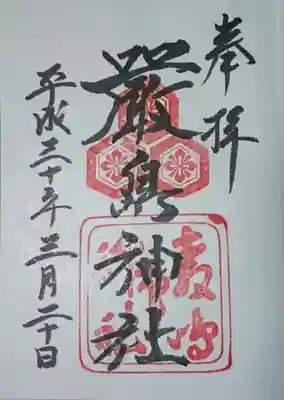 奉拝
嚴島神社
平成三十年三月二十日